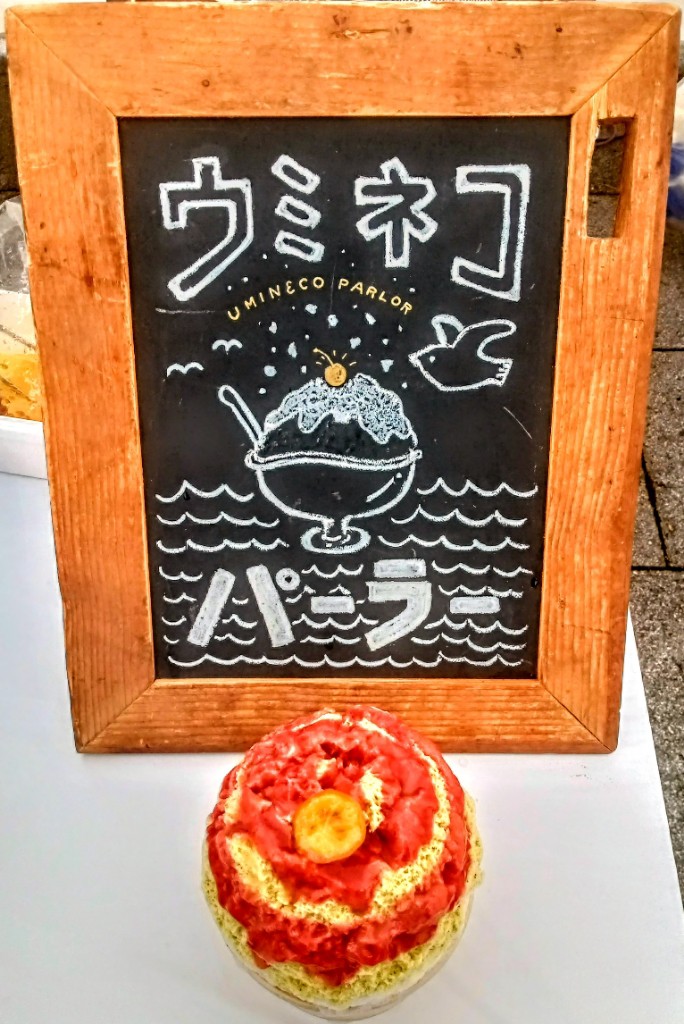 ウミネコ
UMINECO PARLOR
パーラー